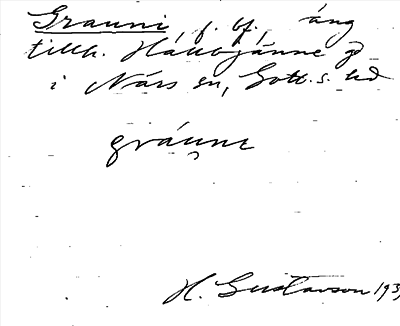 Grauni, f. bf., äng
tillh. Hallvjänne gd
i När sn, Gotl. s. hd
gráune
H. Gustavson 193